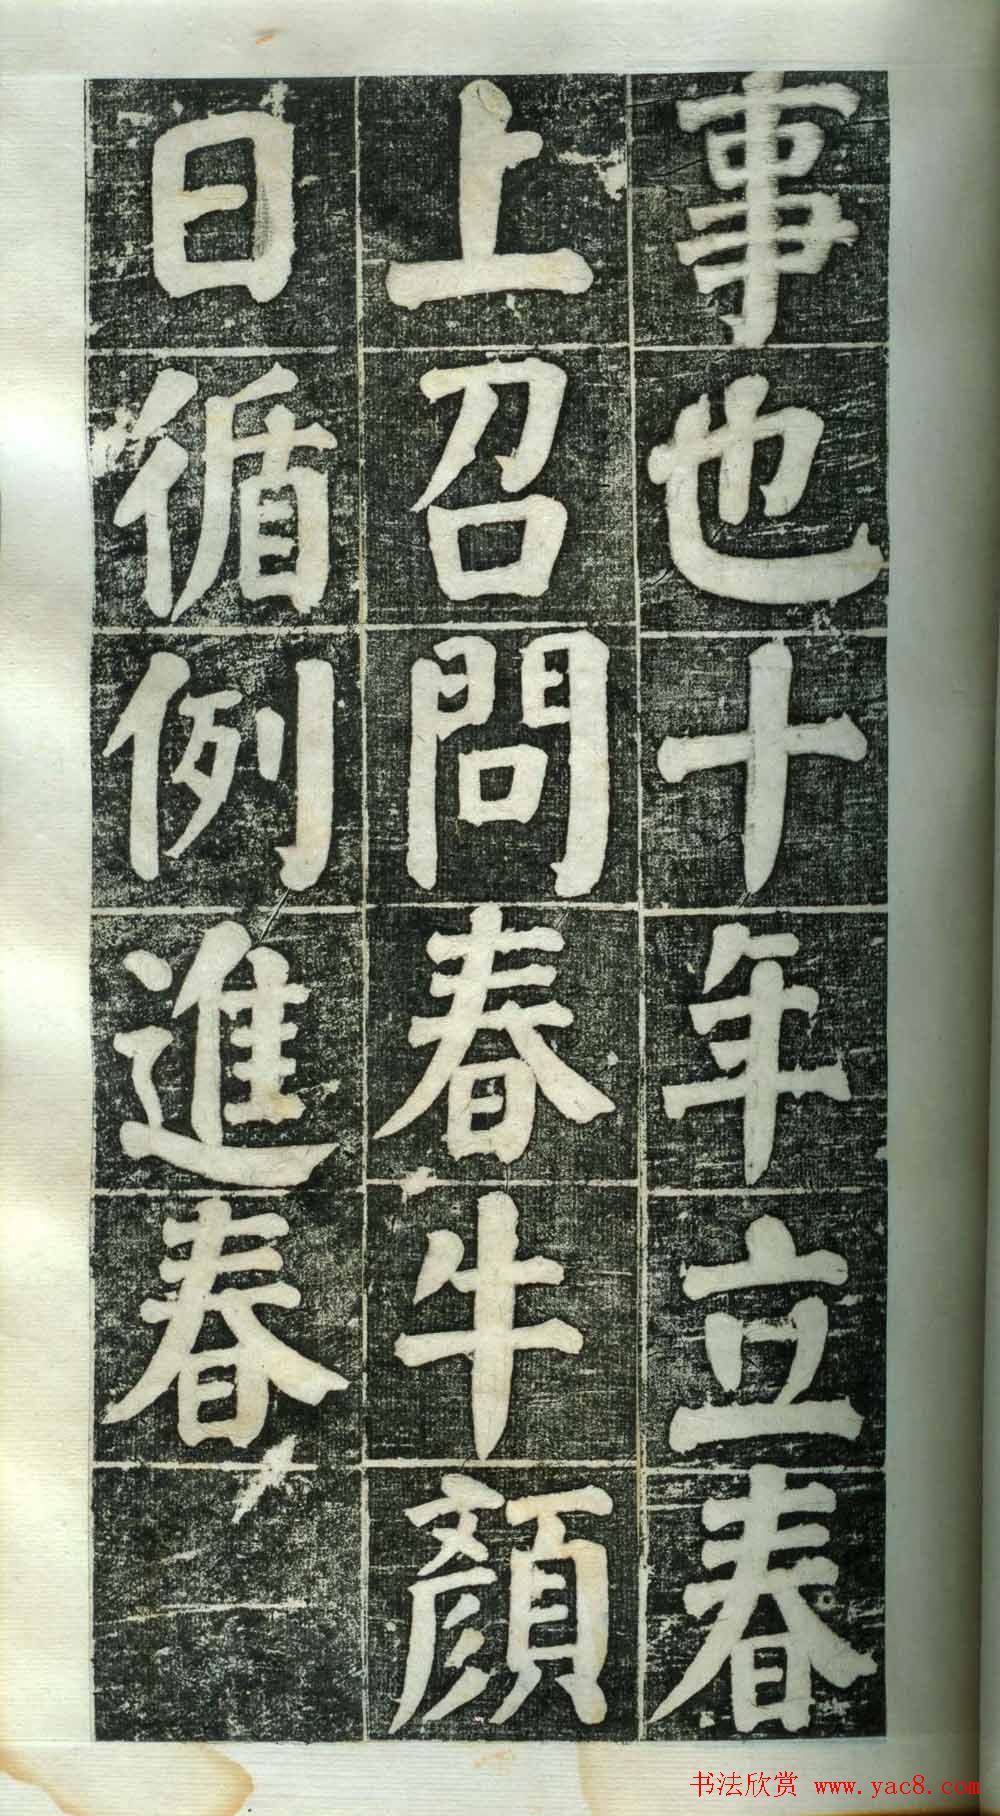 事也十年立春
上召問春牛顏
日循例進春
书法欣赏 www.yac8.com